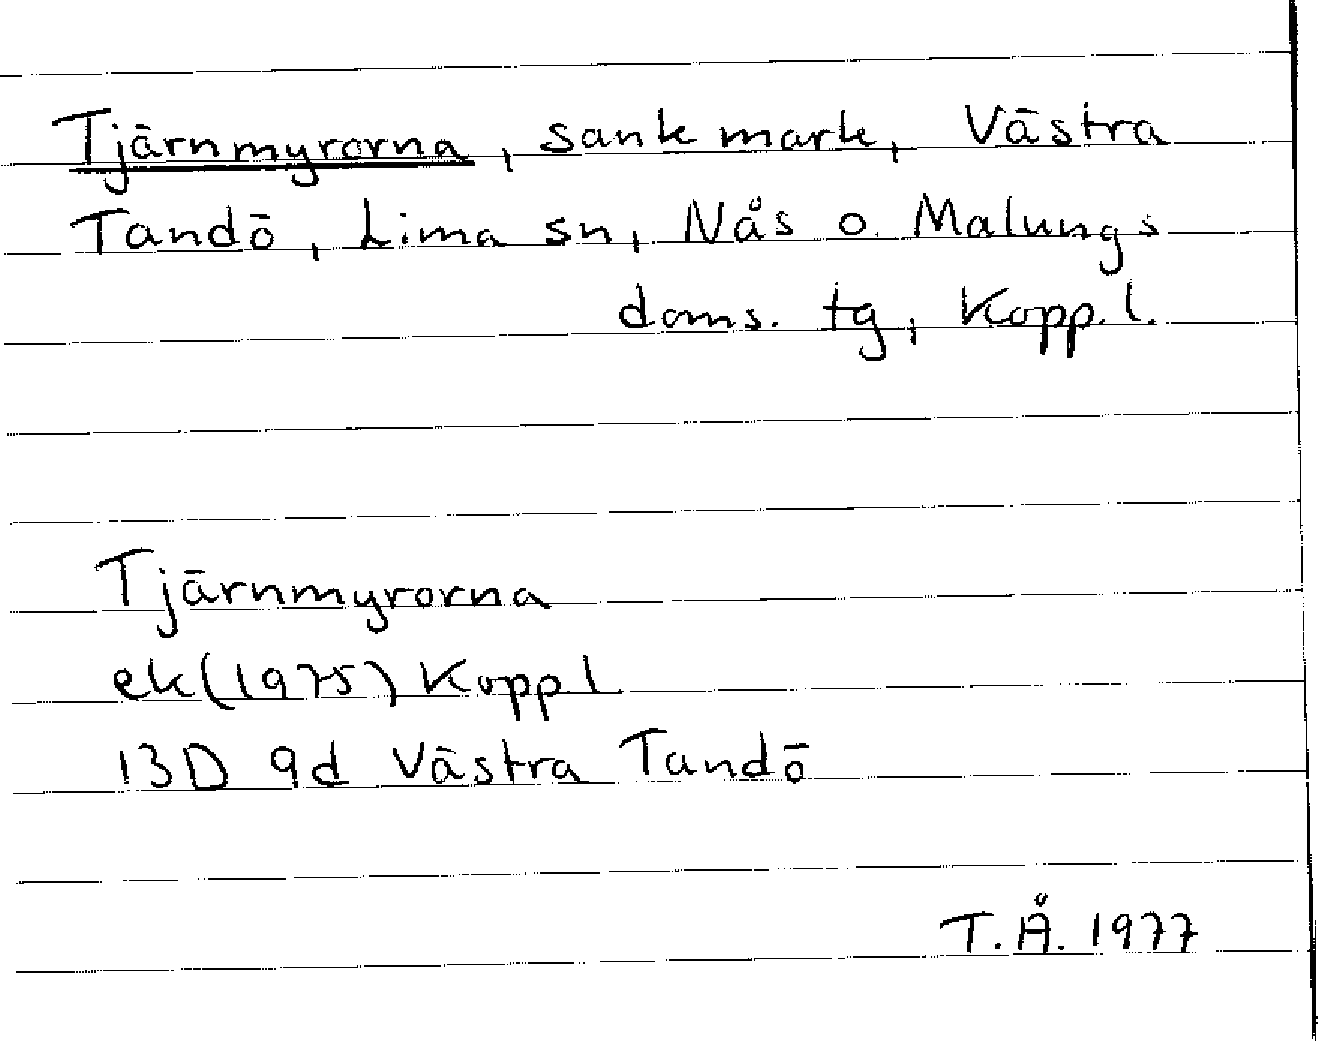 Tjärnmyrorna, sank mark, Västra
Tandö, Lima sn, Nås o. Malungs
doms. tg, Kopp. l.
Tjärnmyrorna
ek(1975) Kopp l
13D 9d Västra Tandö
T.Å. 1977